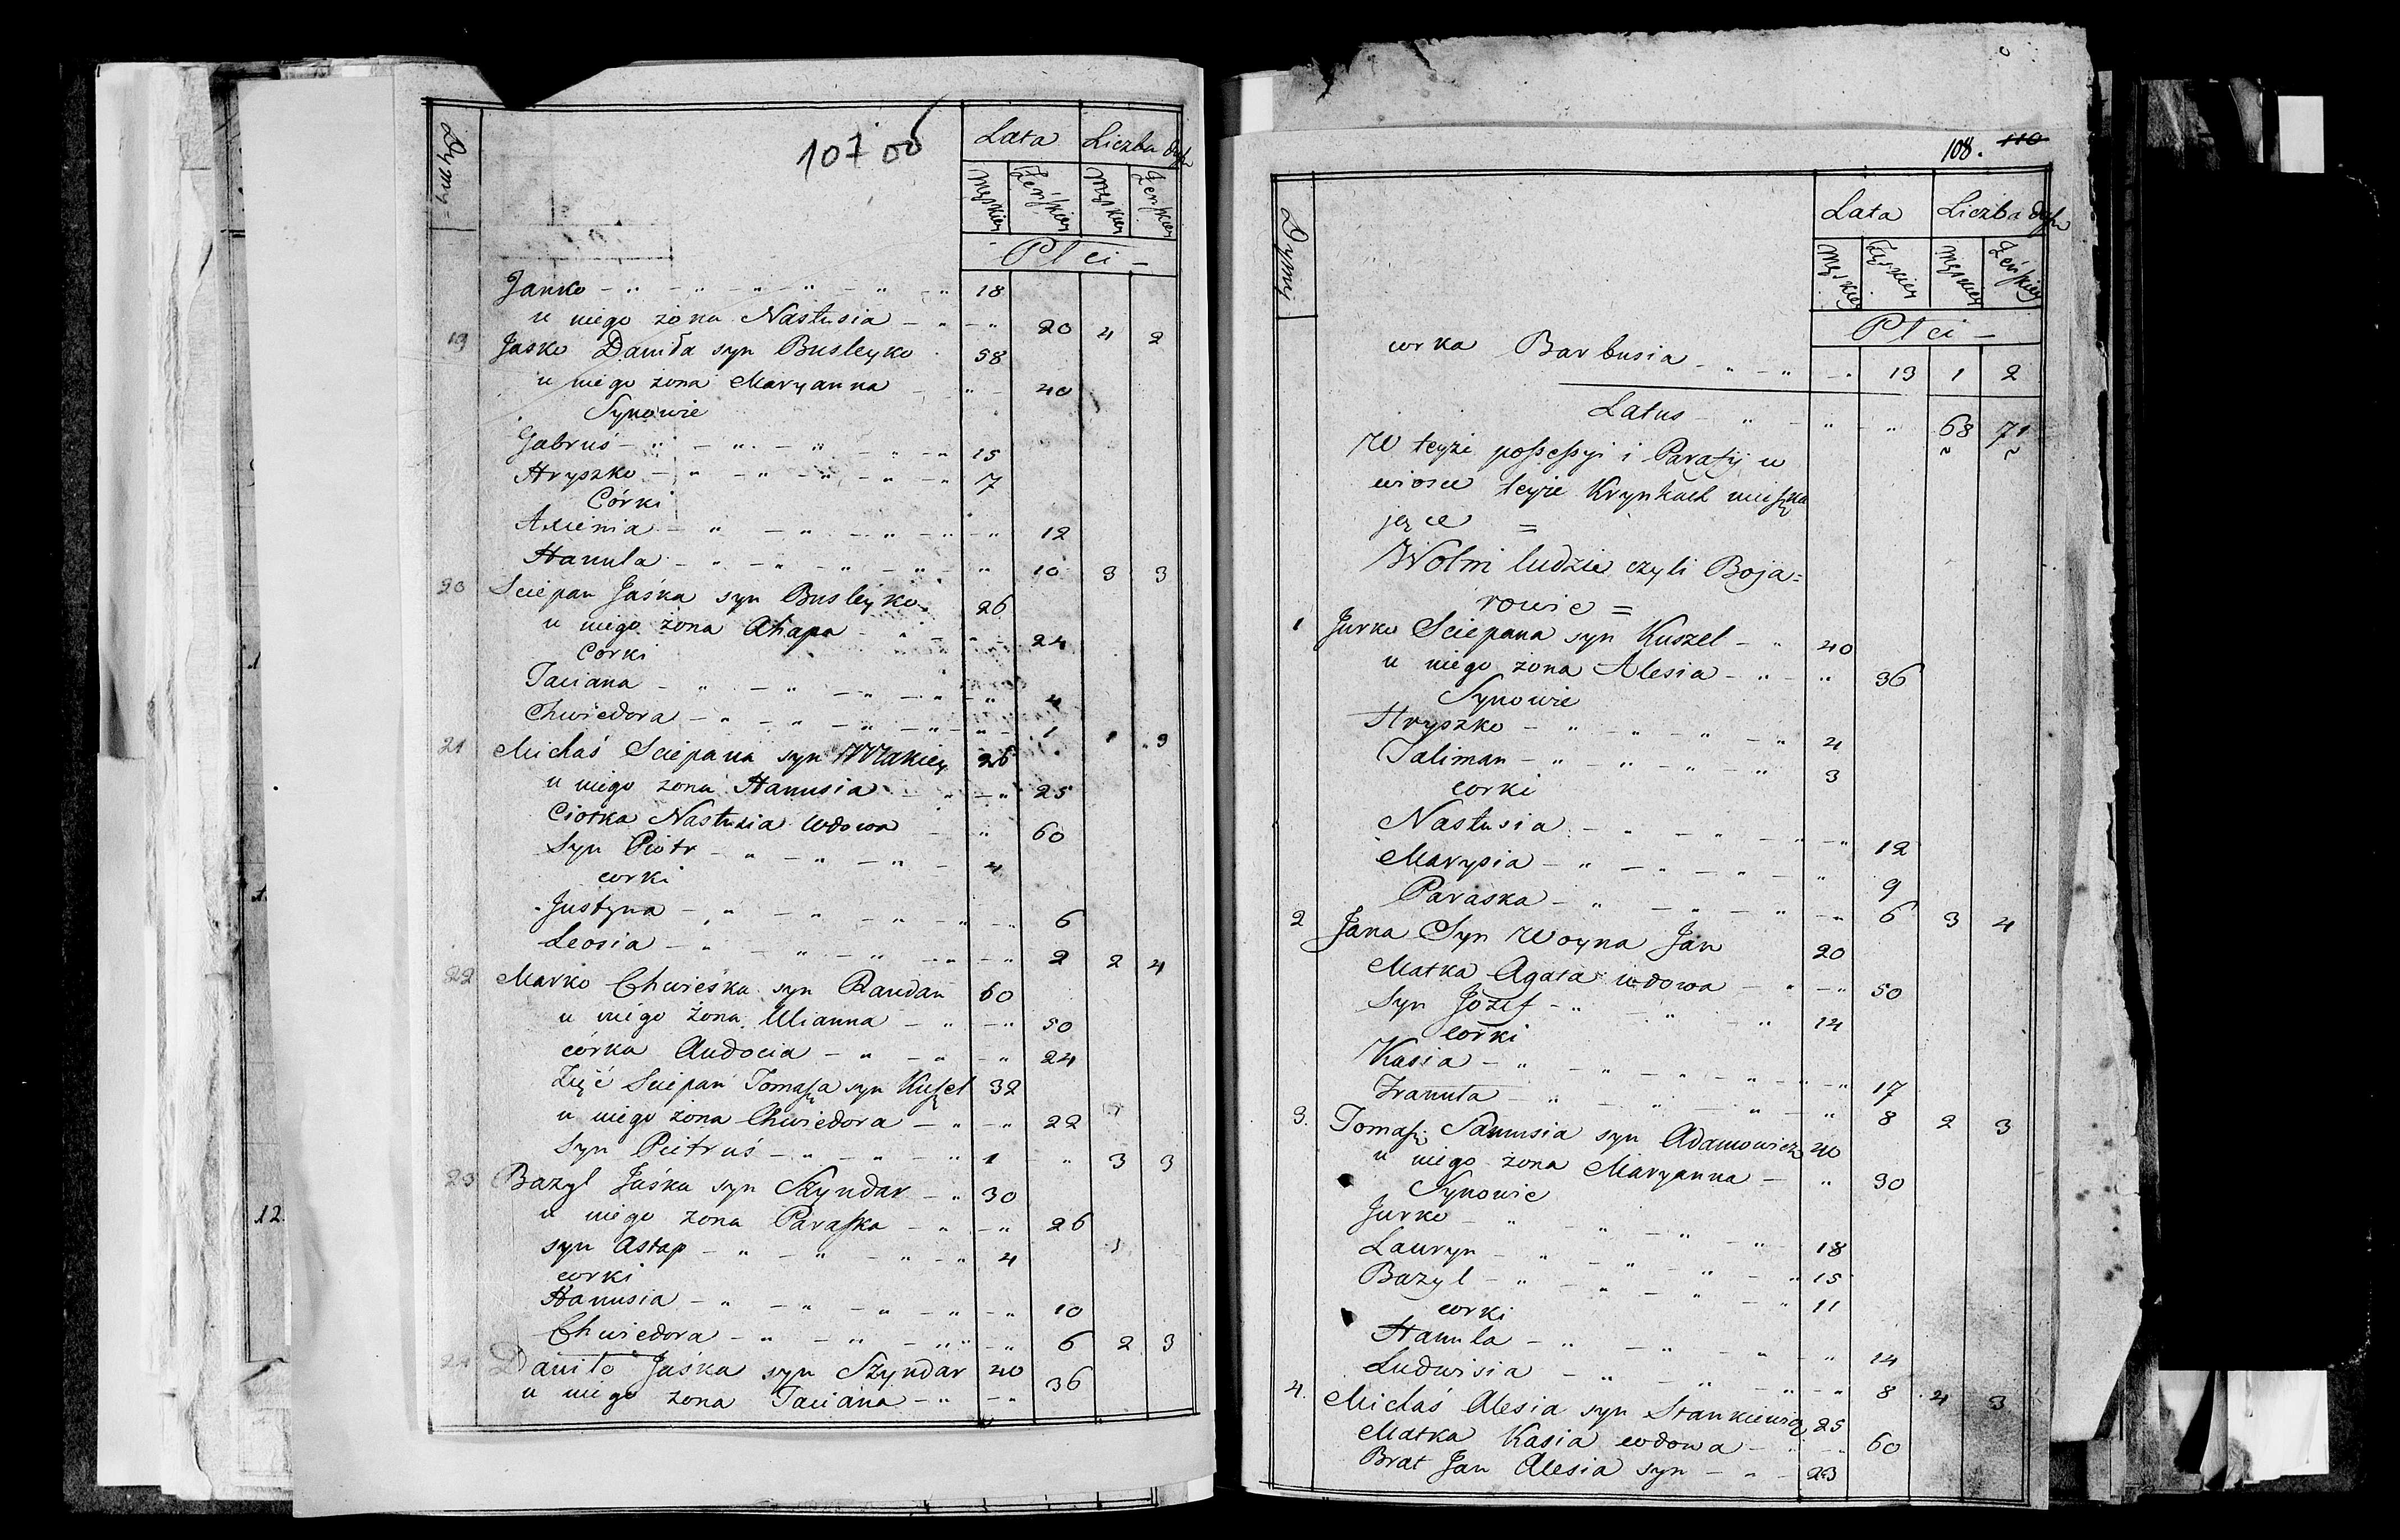 107 об
Dymy
Lata Liczba dusz
Męskiey Żeńskiey Męskiey Żeńskiey
Płci
Janko 18
u niego żona Nastusia 20 4 2
19 Jasko Daniła syn Busleyko 58
u niego żona Maryanna 40
Synowie
Gabruś 15
Hryszko 7
Córki
Axienia 12
Hanula 10 3 3
20 Sciepan Jaśka syn Busleyko 26
u niego żona Ahapa 24
Corki
Taciana 4
Chwiedora 1 1 3
21 Michaś Sciepana syn 26
u niego żona Hanusia 25
Ciotka Nastusia wdowa 60
Syn Piotr 4
corki
Justyna 6
Leosia 2 2 4
22 Marko Chwieśka syn Randan 60
u niego żona Ulianna 50
córka Audocia 24
Zięć Sciepan Tomasza syn Kuszel 32
u niego żona Chwiedora 22
Syn Pietruś 1 3 3
23 Bazyl Jaśka syn Szyndar 30
u niego żona Paraska 26
syn Astap 4
corki
Hanusia 10
Chwiedora 6 2 3
24 Daniło Jaśka syn Szyndar 40
u niego żona Taciana 36
108. 110
Dymy
Lata Liczba dusz
Męskiey Żeńskiey Męskiey Żeńskiey
Płci
corka Barbusia 13 1 2
Latus 68 71
W teyże possessyi i Parafij w
wiosce teyże Krynkach mieszka
jące =
Wolni ludzie czyli Boja=
rowie =
1 Jurko Sciepana syn Kuszel 40
u niego żona Alesia 36
Synowie
Hryszko 4
Taliman 3
corki
Nastusia 12
Marysia 9
Paraska 6 3 4
2 Jana Syn Woyna Jan 20
Matka Agata wdowa 50
Syn Jozef 14
corki
Kasia 17
Franuta 8 2 3
3. Tomasz Samusia syn Adamowicz 40
u niego żona Maryanna 30
Synowie
Jurko 18
Lauryn 15
Bazyl 11
corki
Hanula 14
Ludwisia 8 4 3
4. Michaś Alesia syn Stankiewicz 25
Matka Kasia wdowa 60
Brat Jan Alesia syn 23
12.